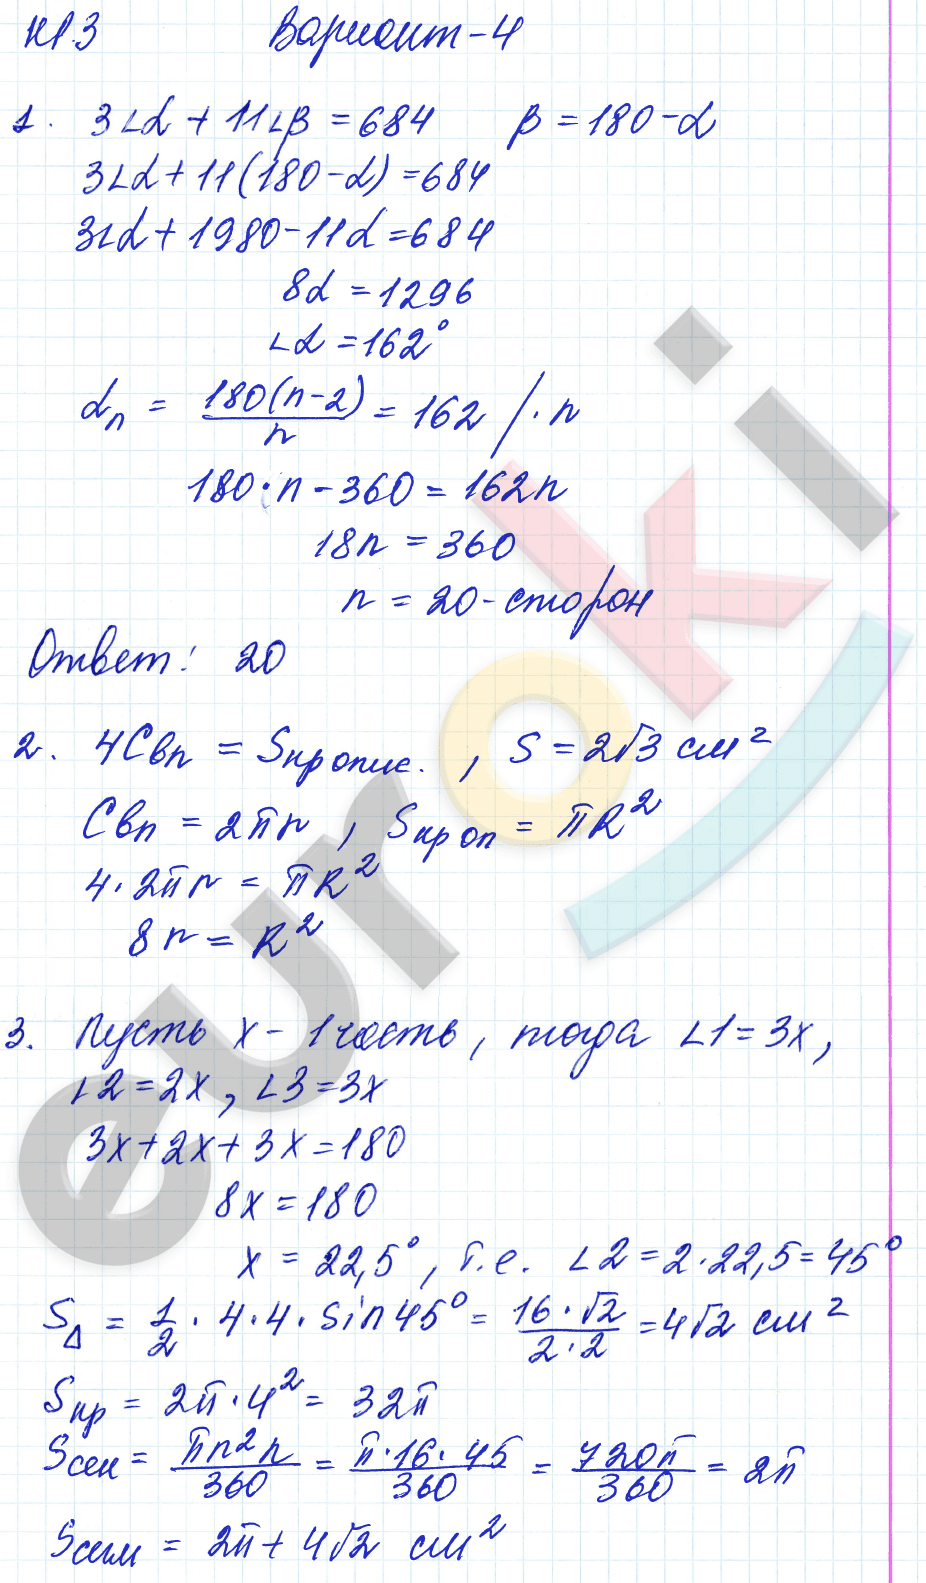 КР.3 Вариант-4
1. 3∠α + 11∠β = 684 β = 180-α
3∠α + 11(180-α) = 684
3∠α + 1980 - 11α = 684
8α = 1296
∠α = 162°
αn = 180(n-2)/n = 162 /·n
180·n - 360 = 162n
18n = 360
n = 20 - сторон
Ответ: 20
2. 4Cвп = Sкр опис. , S = 2√3 см²
Cвп = 2πr , Sкр оп = πR²
4·2πr = πR²
8r = R²
3. Пусть x - 1 часть, тогда ∠1 = 3x,
∠2 = 2x, ∠3 = 3x
3x + 2x + 3x = 180
8x = 180
x = 22,5° , т.е. ∠2 = 2·22,5 = 45°
S∆ = 1/2 · 4 · 4 · sin 45° = 16·√2/2·2 = 4√2 см²
Sкр = 2π·4² = 32π
Sсек = πr²n/360 = π·16·45/360 = 720π/360 = 2π
Sсегм = 2π + 4√2 см²
euroki